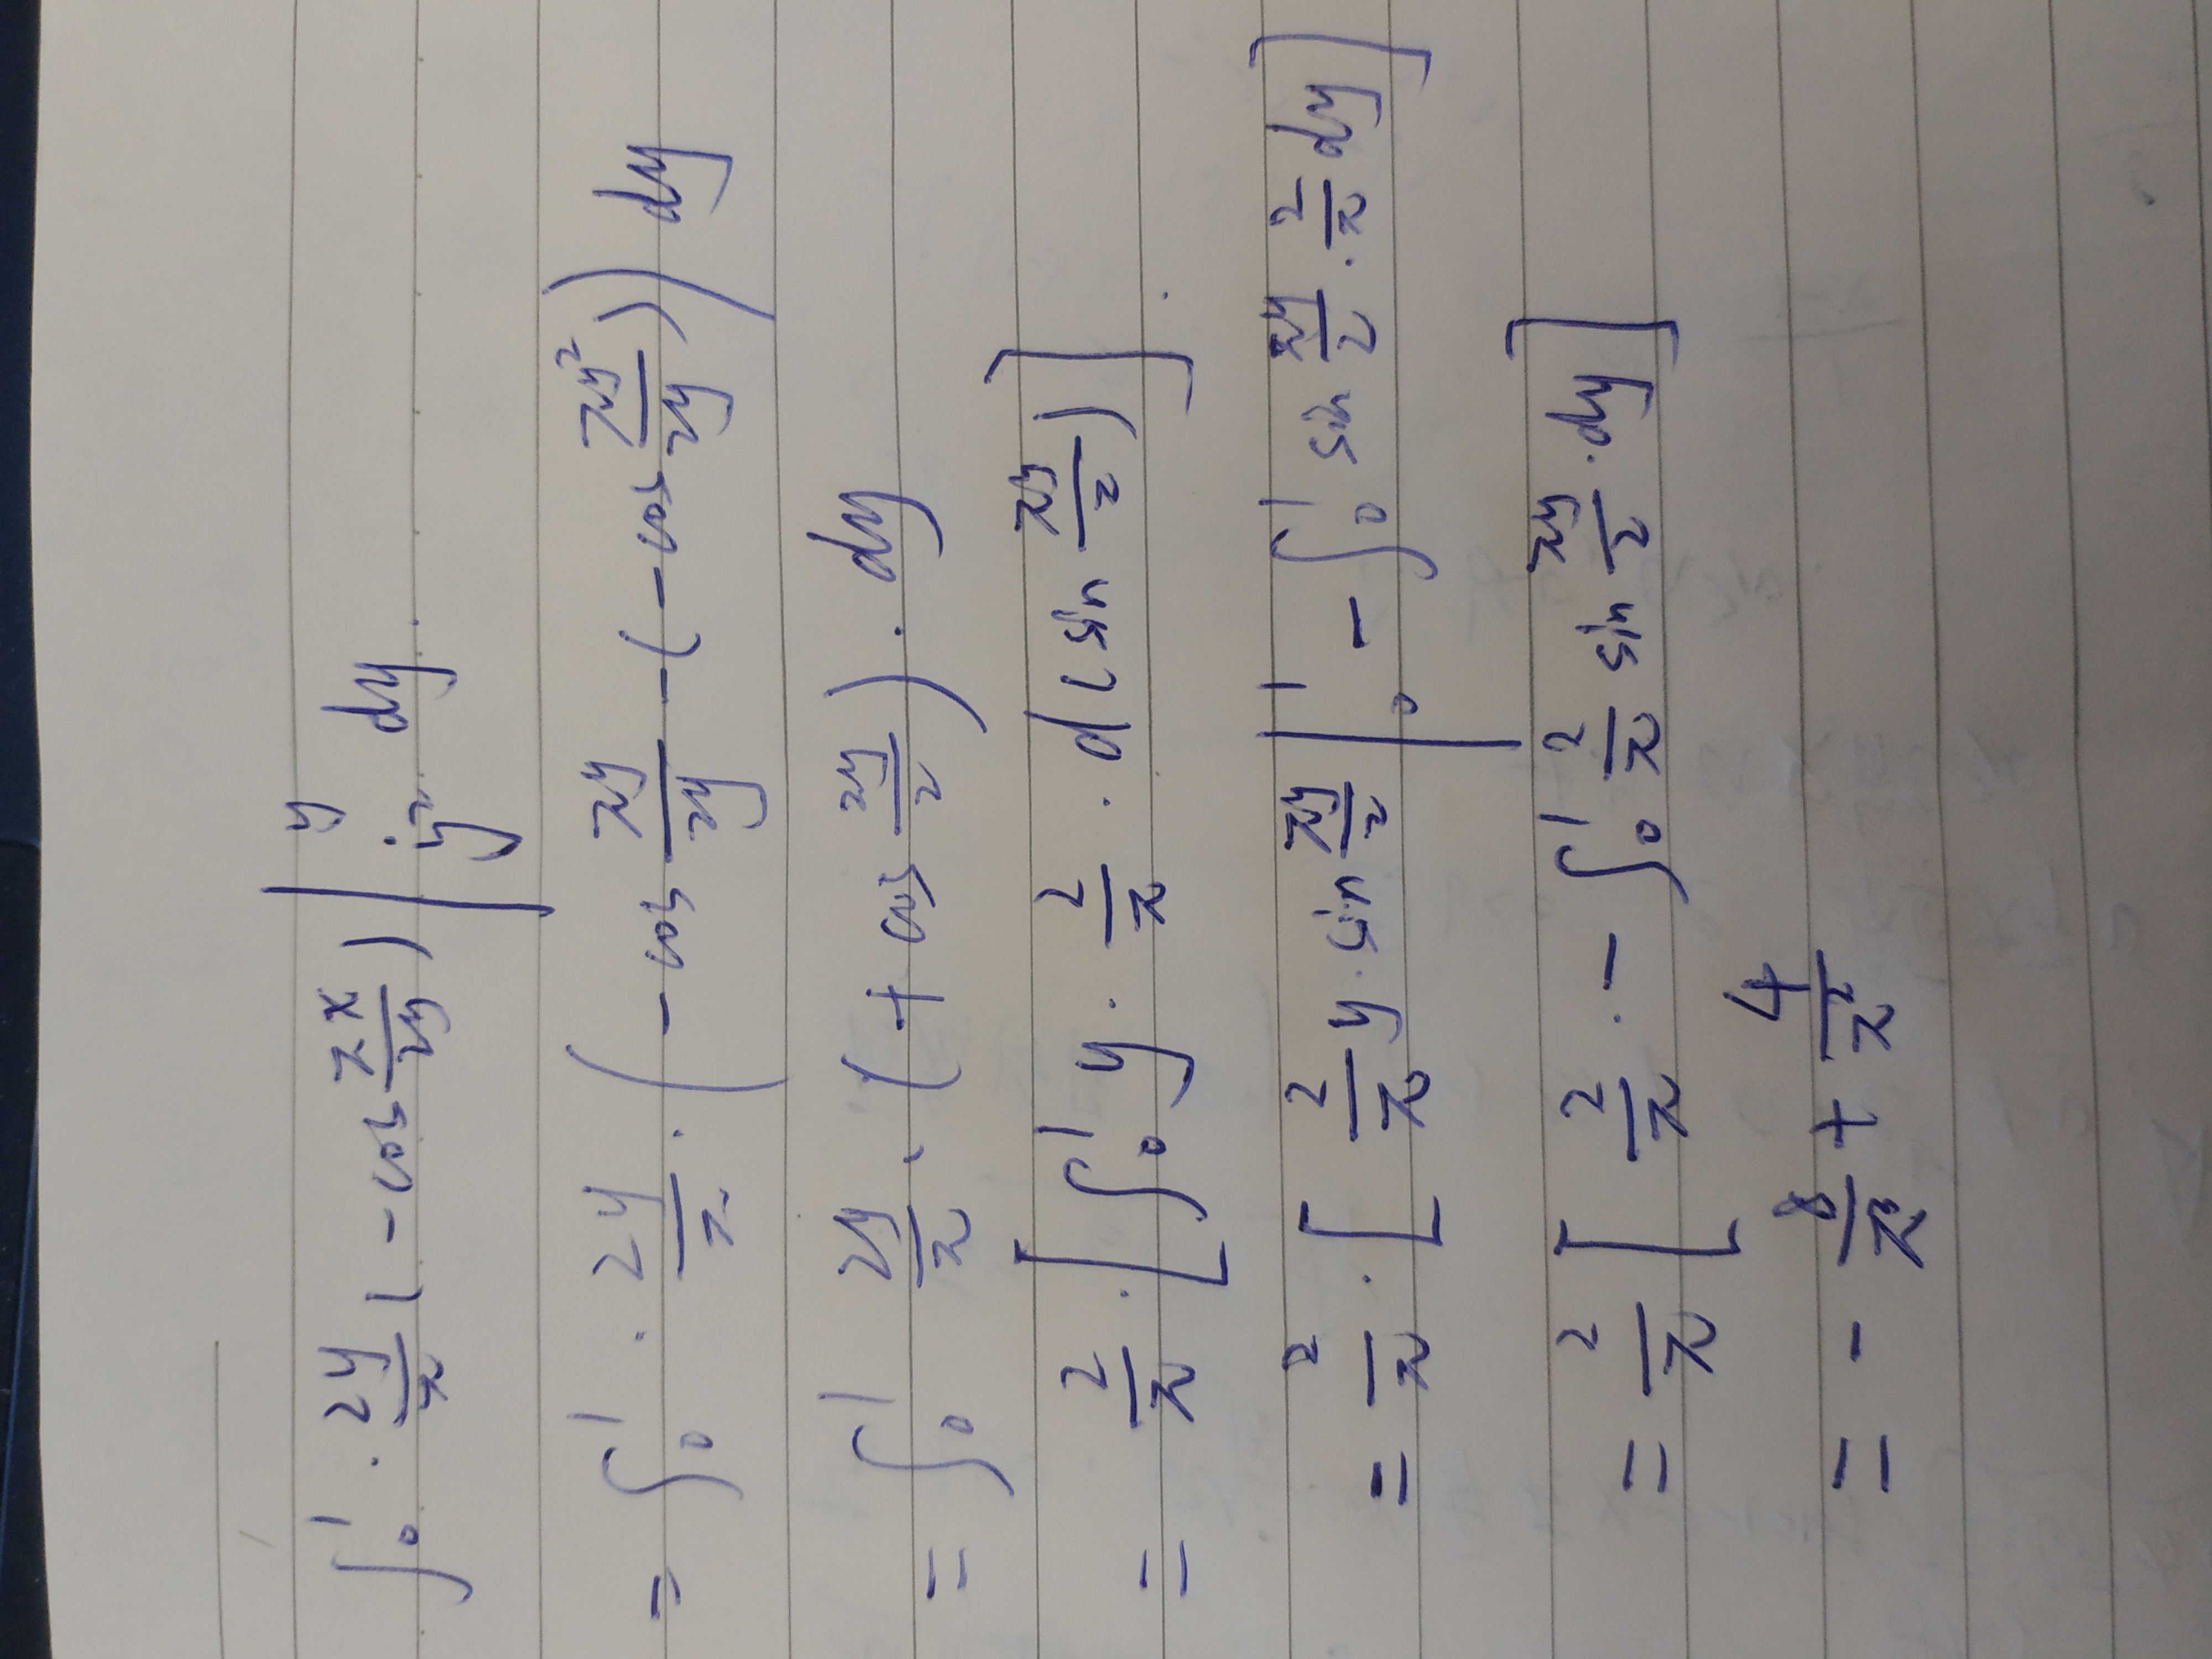 ∫₀¹ · 2y/π (-cos πx/2y) |_{y²}^{y} dy.
= ∫₀¹ · 2y/π · (-cos πy/2y - (-cos πy²/2y)) dy
= ∫₀¹ 2y/π · (+cos πy/2) · dy
= 2/π · [∫₀¹ y · 2/π · d(sin πy/2)]
= 2/π · [2/π y · sin πy/2 |₀¹ - ∫₀¹ sin πy/2 · 2/π dy]
= 2/π [2/π · - ∫₀¹ 2/π sin πy/2 · dy]
= - 8/π³ + 4/π²